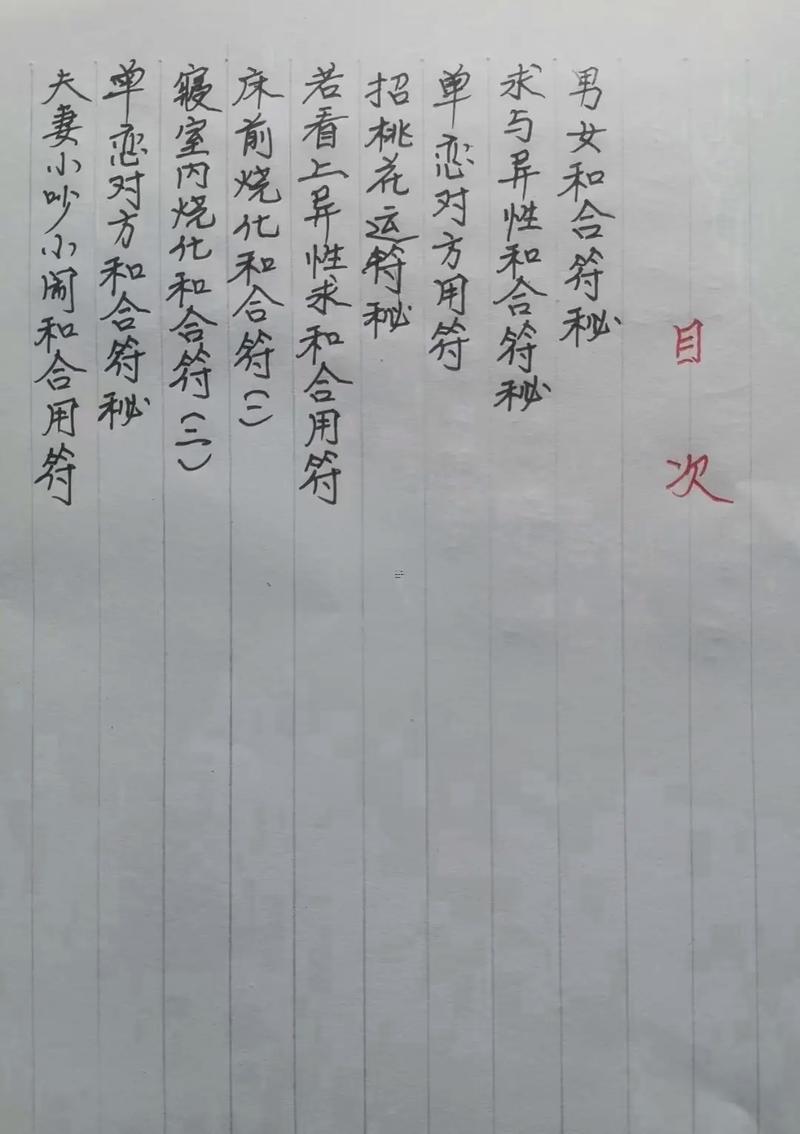 目次
男女和合符秘
求与异性和合符秘
单恋对方用符
招桃花运符秘
若看上异性求和合用符
床前烧化和合符(一)
寝室内烧化和合符(二)
单恋对方和合符秘
夫妻小吵小闹和合用符